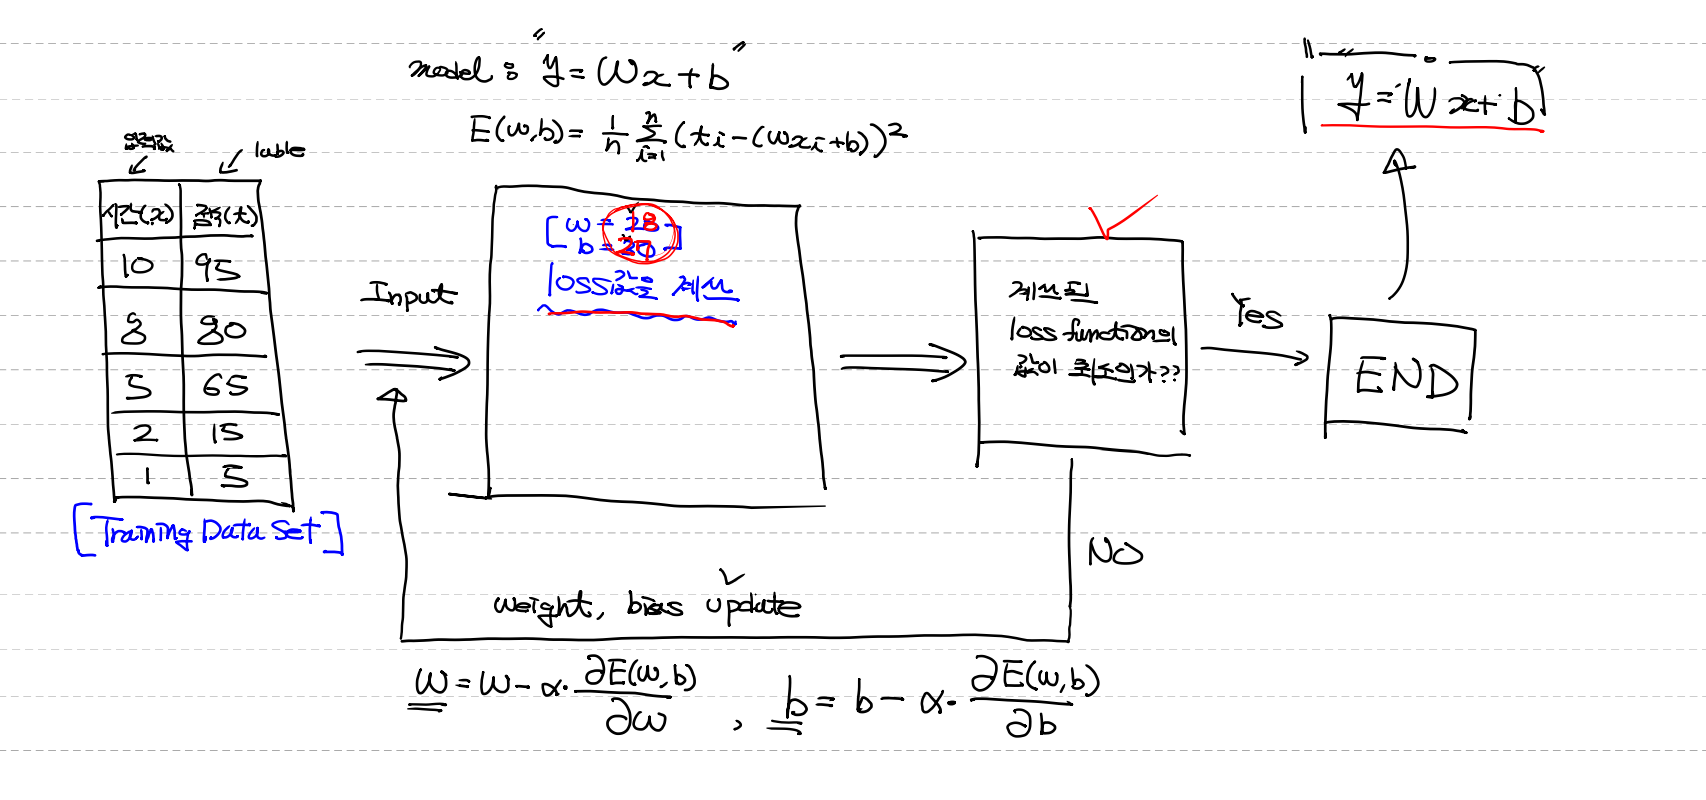 model : "y = Wx + b"
E(w,b) = 1/n Σ i=1 n (ti - (wxi + b))²
"y = Wx + b"
입력값 lable
시간(x) 점수(t)
10 95
8 80
5 65
2 15
1 5
[Training Data Set]
Input
w =
b =
loss값을 계산
계산된
loss function의
값이 최소인가??
Yes
END
NO
weight, bias update
w = w - α · ∂E(w,b)/∂w , b = b - α · ∂E(w,b)/∂b